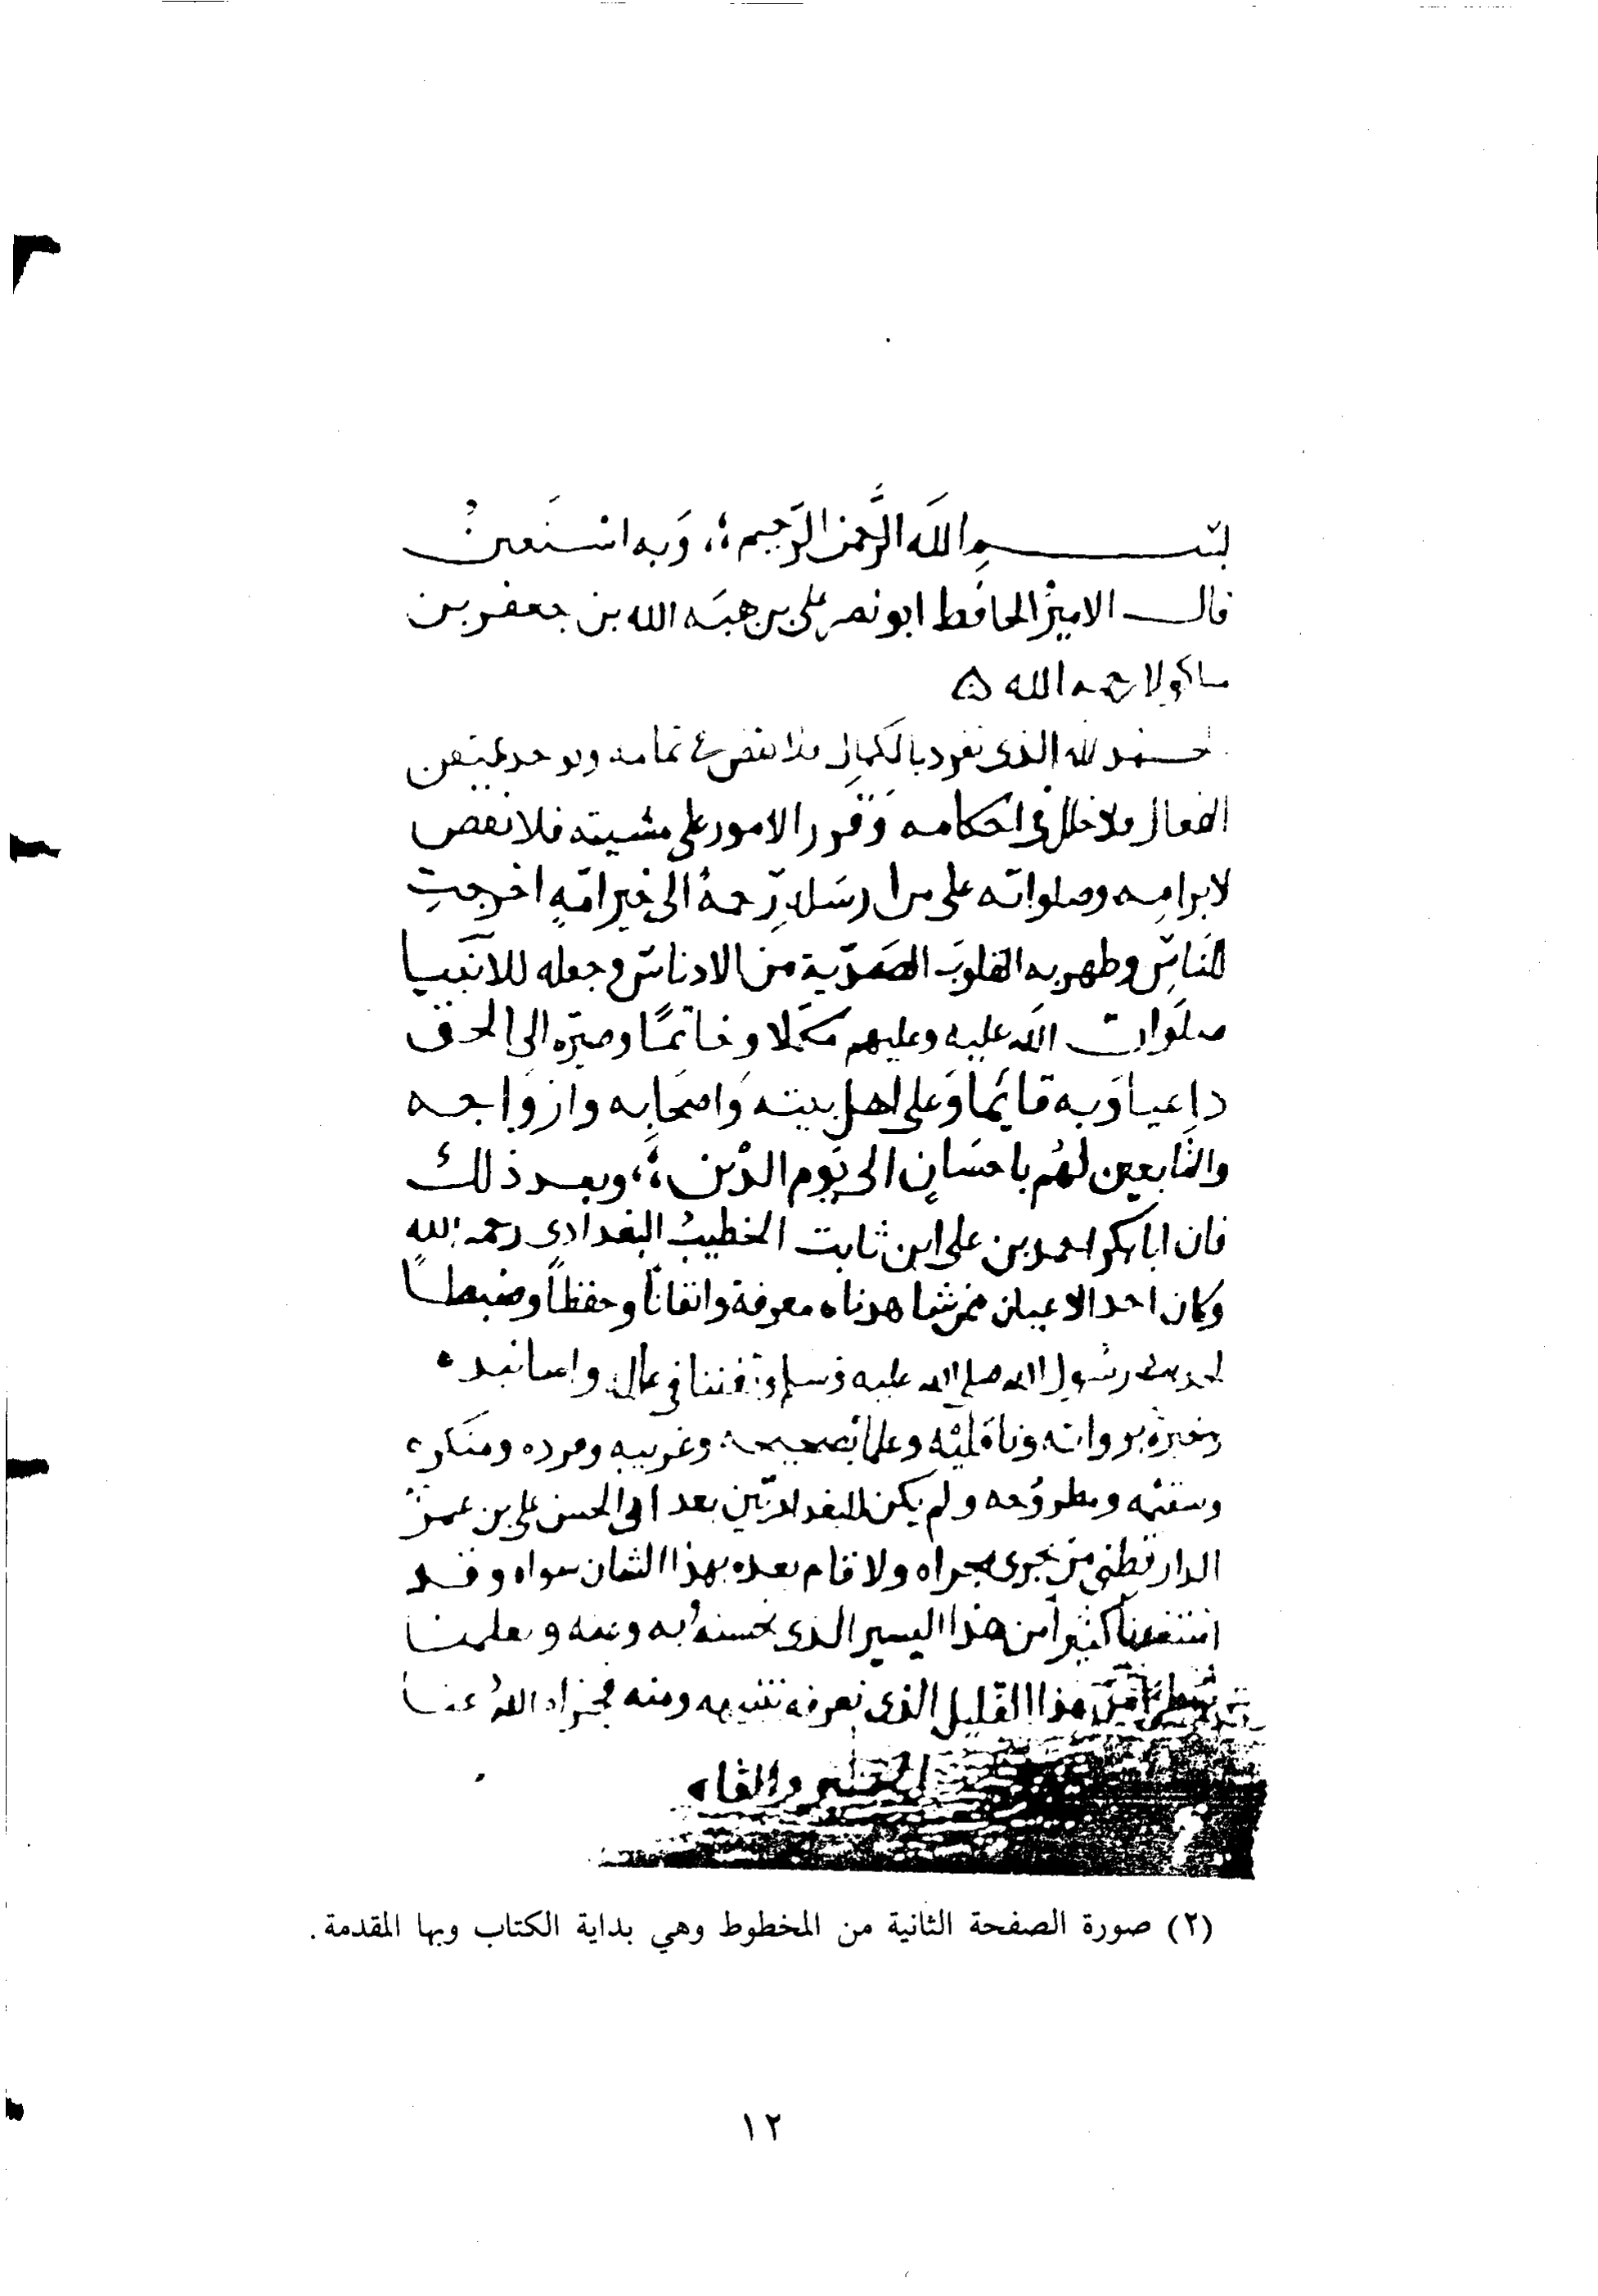 بسم الله الرَّحمن الرَّحيم ؛، وَبه استَعينُ
قال الاميرُ الحافظ ابو نصر علي بن هبَه الله بن جعفر بن
ماكولا رحمه الله ه
الحمد لله الذي تفرد بالكمال فلا نقص في تمامه وتوحد
الفعال ولا خلل في احكامه وَقَرر الامور على مشيته فلا نقض
لابرامِه وصلواته على من ارسَله رّحمةً الى خير امّةٍ اخرجتِ
للنَاسِ وطهر به القلوبَ الصَدّية من الادناس وجعله للانبيا
صلَوات اللَه عليه وعليهم مكمّلا وخاتمًا وصيّره الى الحق
داعيا وَبه قائمًا وَعلى اهل بيته وَاصحَابه وازوَاجه
والتابعين لهُم باحسَانٍ الى يَوم الدّين ؛، وبعد ذلك
فان ابا بكر احمد بن علي ابن ثابت الخطيبُ البغدادي رحمه الله
وكان احد الاعيان ممن شاهدناه معرفة واتقاناً وحفظاً وضبطاً
لحديث رسُول الله صلى الله عليه وَسلم وتفننا في علل واسانيده
وخبرةً برواته وناقليْه وعلماً بصحيحه وغريبه وفرده ومنَكره
وسقيمه ومطروُحه ولم يكن للبغداديّين بعد ابي الحسن علي بن عمر
الدارقطني من يجرى مجراه ولا قام بعده بهذا الشان سواه وقد
انتفعنا كثيراً من هذا اليسير الذى نحسنهُ به وعنه وتعلمنا
شطراً من هذا القليل الذى نعرفه بتنبيهه ومنه فجزاه اللهُ عنا
الخير ولقاه
(٢) صورة الصفحة الثانية من المخطوط وهي بداية الكتاب وبها المقدمة .
١٢